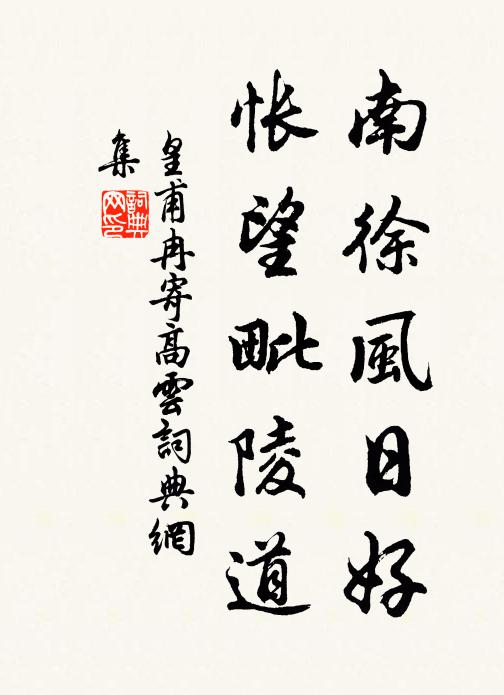 南徐風日好
悵望毗陵道
皇甫冉寄高雲詞典網
集
詞典
网印